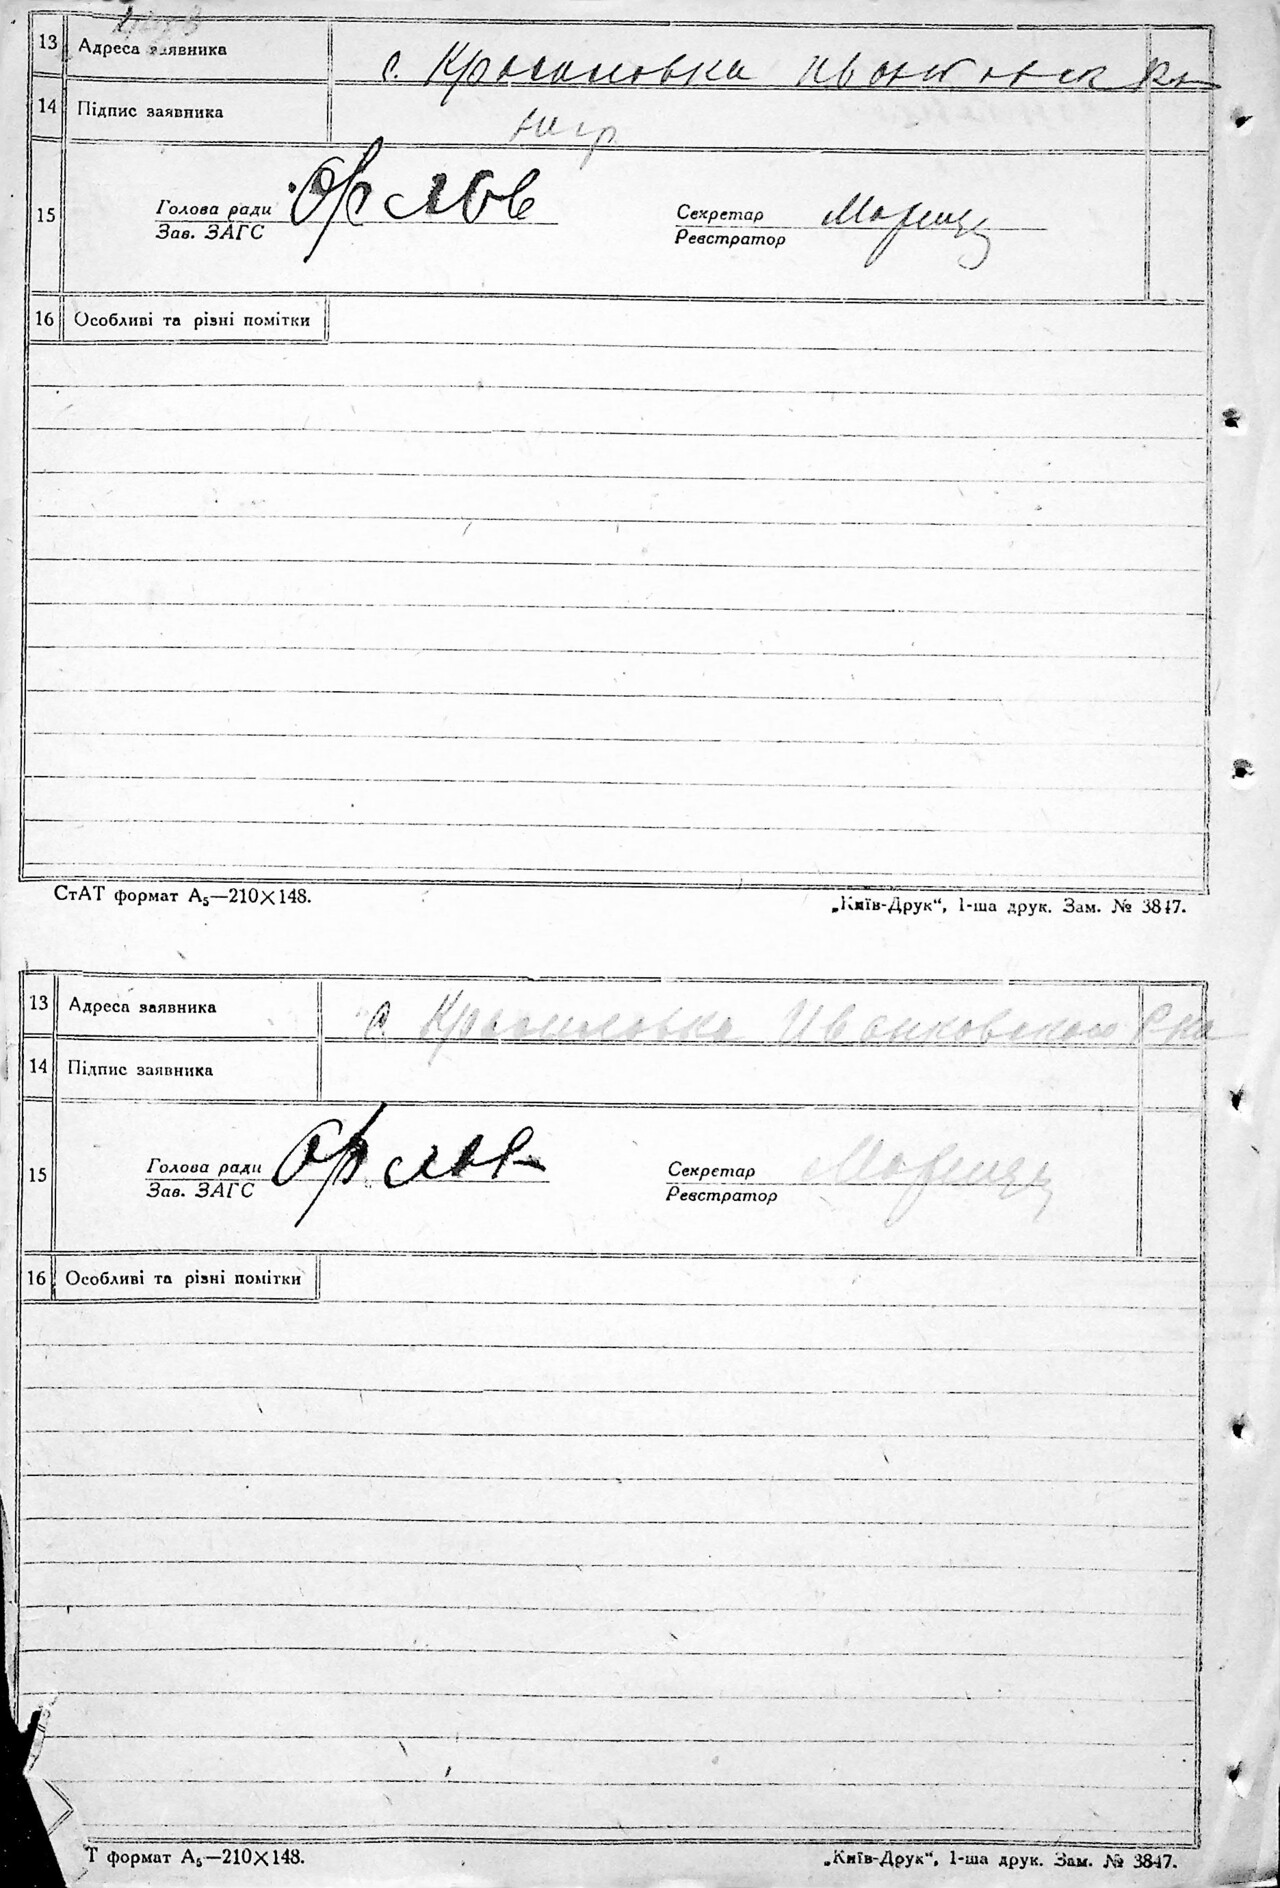 13 Адреса заявника с. Красиловка
14 Підпис заявника
15 Голова ради Орлов Секретар
Зав. ЗАГС Реєстратор
16 Особливі та різні помітки
СтАТ формат А₅—210×148. „Київ-Друк“, 1-ша друк. Зам. № 3847.
13 Адреса заявника с. Красиловка Иванковского р-на
14 Підпис заявника
15 Голова ради Орлов Секретар
Зав. ЗАГС Реєстратор
16 Особливі та різні помітки
Т формат А₅—210×148. „Київ-Друк“, 1-ша друк. Зам. № 3847.